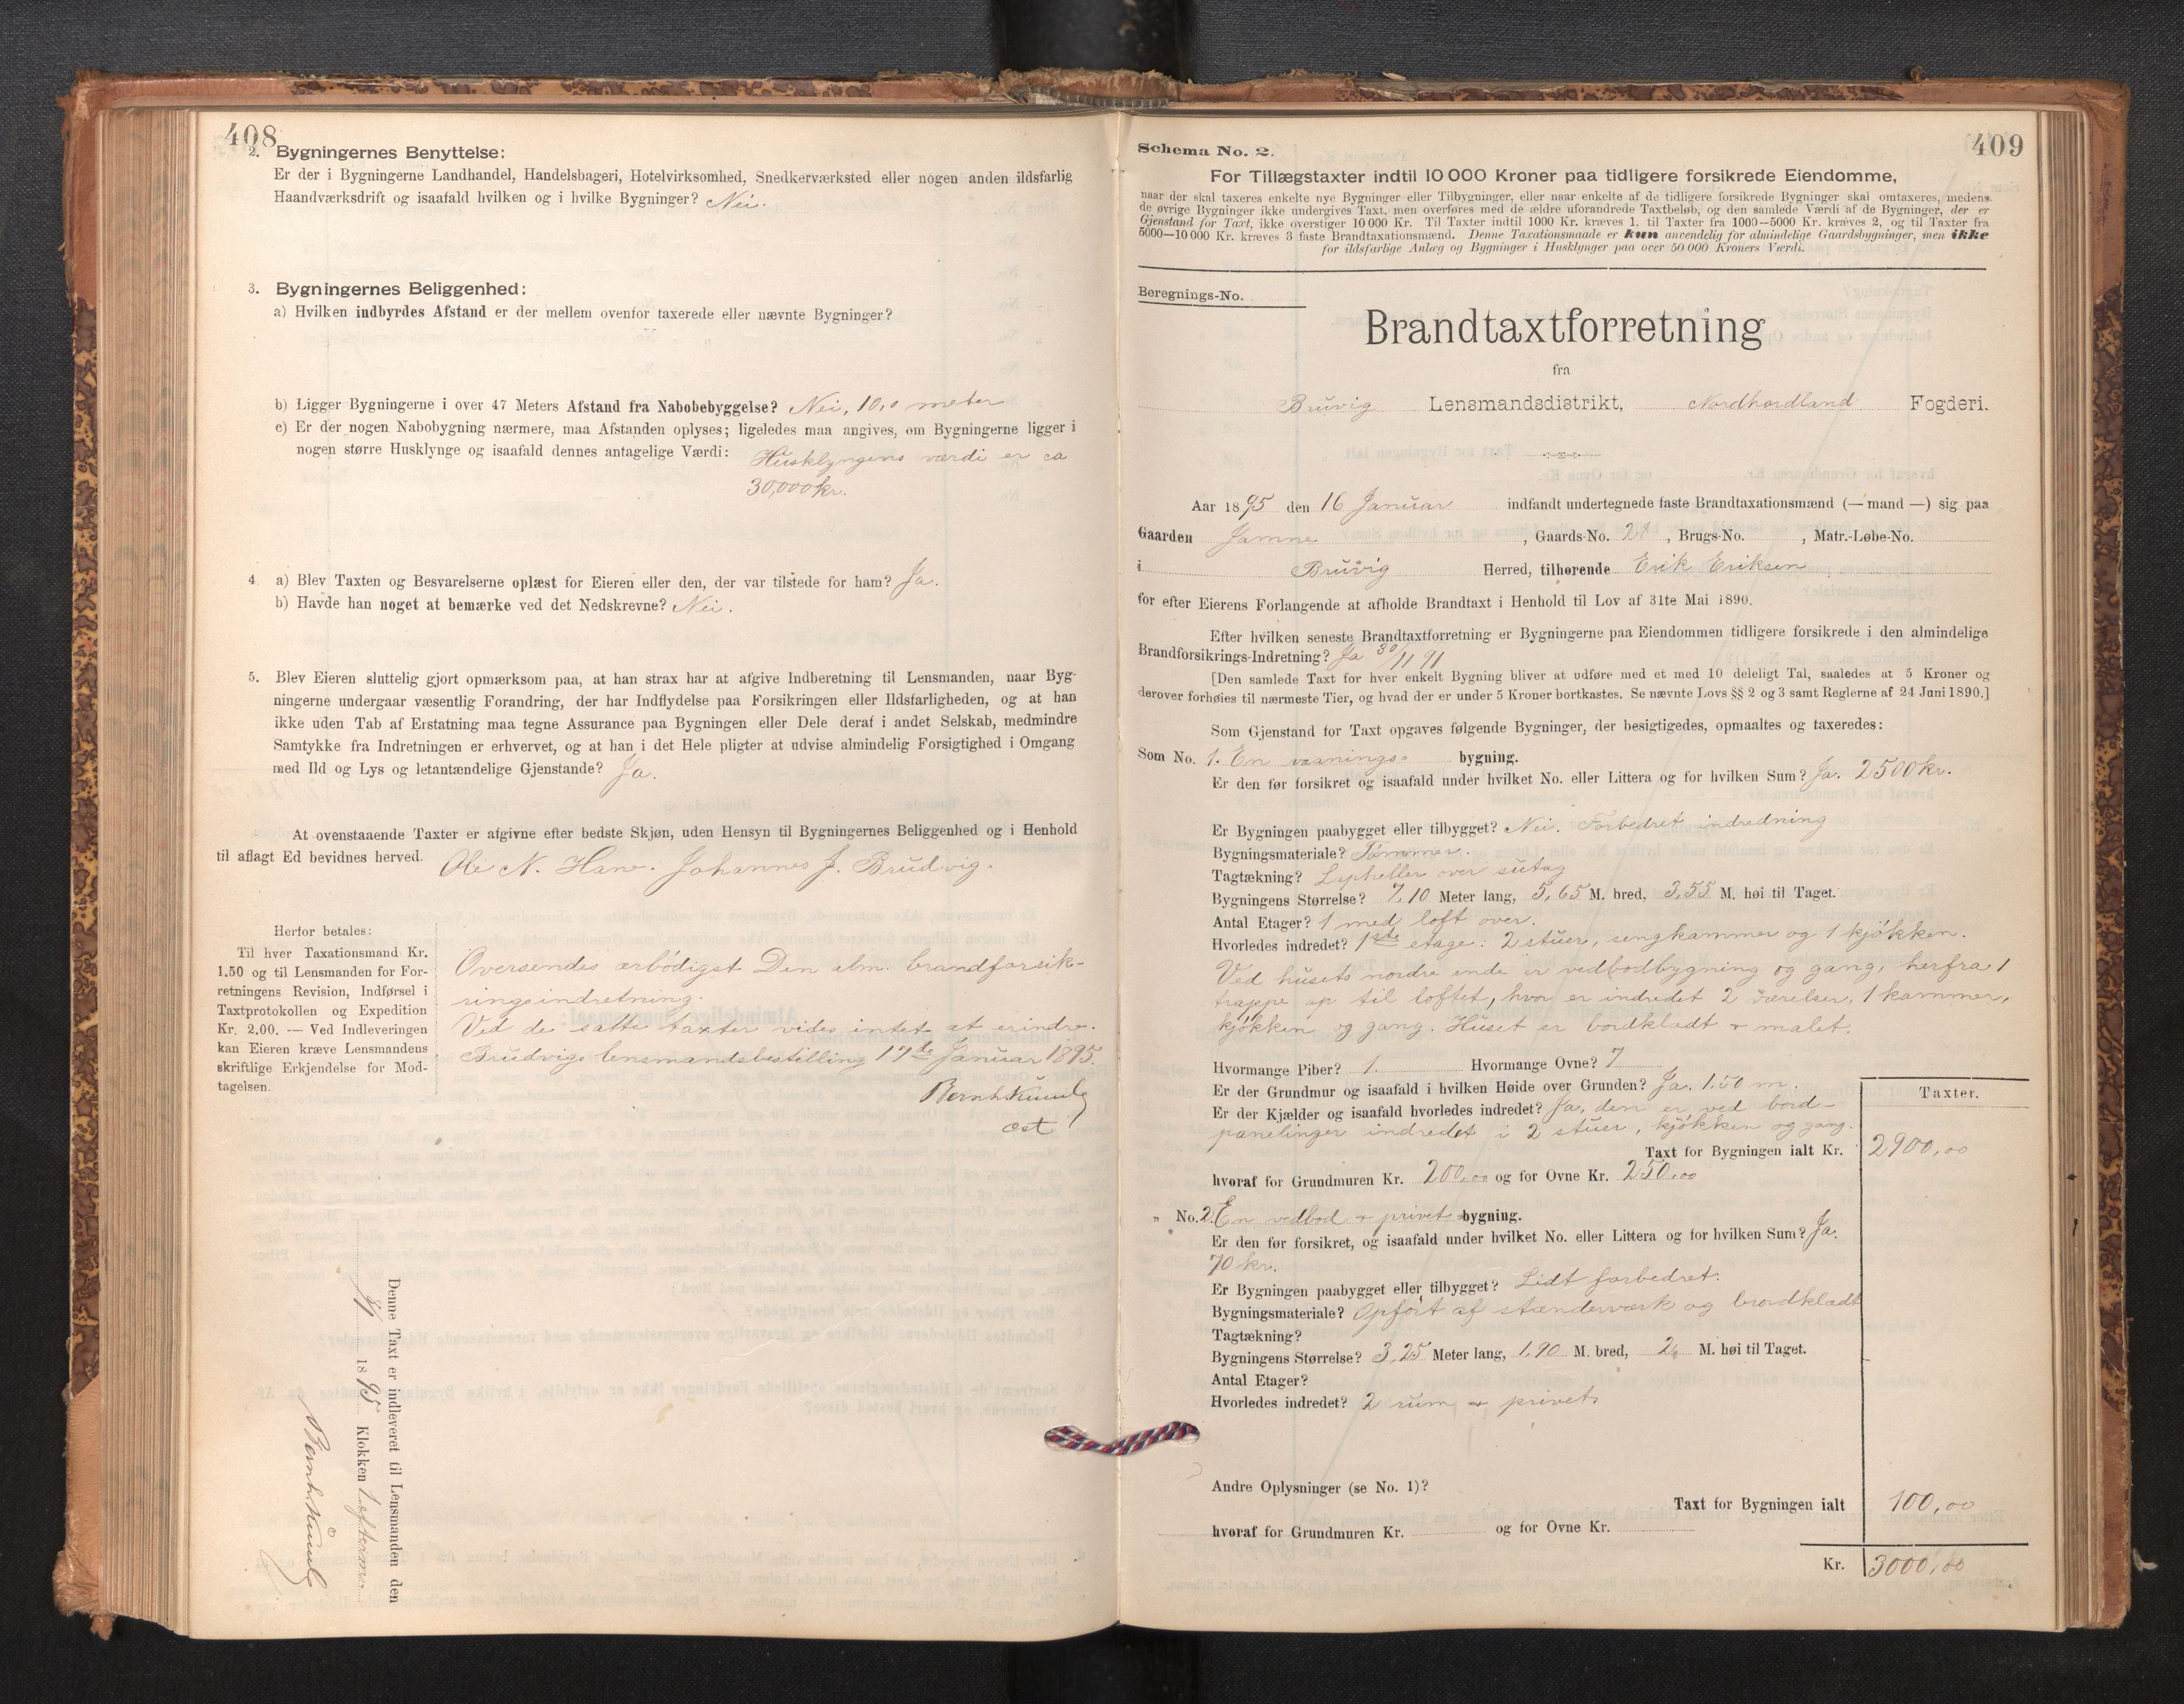 408
2. Bygningernes Benyttelse:
Er der i Bygningerne Landhandel, Handelsbageri, Hotelvirksomhed, Snedkerværksted eller nogen anden ildsfarlig
Haandværksdrift og isaafald hvilken og i hvilke Bygninger? Nei.
3. Bygningernes Beliggenhed:
a) Hvilken indbyrdes Afstand er der mellem ovenfor taxerede eller nævnte Bygninger?
b) Ligger Bygningerne i over 47 Meters Afstand fra Nabobebyggelse? Nei, 10,0 meter
c) Er der nogen Nabobygning nærmere, maa Afstanden oplyses; ligeledes maa angives, om Bygningerne ligger i
nogen større Husklynge og isaafald dennes antagelige Værdi: Husklyngens værdi er ca
30,000 kr.
4. a) Blev Taxten og Besvarelserne oplæst for Eieren eller den, der var tilstede for ham? Ja.
b) Havde han noget at bemærke ved det Nedskrevne? Nei.
5. Blev Eieren sluttelig gjort opmærksom paa, at han strax har at afgive Indberetning til Lensmanden, naar Byg-
ningerne undergaar væsentlig Forandring, der har Indflydelse paa Forsikringen eller Ildsfarligheden, og at han
ikke uden Tab af Erstatning maa tegne Assurance paa Bygningen eller Dele deraf i andet Selskab, medmindre
Samtykke fra Indretningen er erhvervet, og at han i det Hele pligter at udvise almindelig Forsigtighed i Omgang
med Ild og Lys og letantændelige Gjenstande? Ja.
At ovenstaaende Taxter er afgivne efter bedste Skjøn, uden Hensyn til Bygningernes Beliggenhed og i Henhold
til aflagt Ed bevidnes herved. Ole N. Johannes J. Brudvig.
Herfor betales:
Til hver Taxationsmand Kr.
1.50 og til Lensmanden for For-
retningens Revision, Indførsel i
Taxtprotokollen og Expedition
Kr. 2.00. — Ved Indleveringen
kan Eieren kræve Lensmandens
skriftlige Erkjendelse for Mod-
tagelsen.
Oversendes ærbødigst Den alm. brandforsik-
ringsindretning.
Ved de satte taxter vides intet at erindre.
Brudvigs lensmandsbestilling 17de Januar 1895.
Denne Taxt er indleveret til Lensmanden den
1895 Klokken 1 efterm.
409
Schema No. 2.
For Tillægstaxter indtil 10 000 Kroner paa tidligere forsikrede Eiendomme,
naar der skal taxeres enkelte nye Bygninger eller Tilbygninger, eller naar enkelte af de tidligere forsikrede Bygninger skal omtaxeres, medens
de øvrige Bygninger ikke undergives Taxt, men overføres med de ældre uforandrede Taxtbeløb, og den samlede Værdi af de Bygninger, der er
Gjenstand for Taxt, ikke overstiger 10 000 Kr. Til Taxter indtil 1000 Kr. kræves 1, til Taxter fra 1000—5000 Kr. kræves 2, og til Taxter fra
5000—10 000 Kr. kræves 3 faste Brandtaxationsmænd. Denne Taxationsmaade er kun anvendelig for almindelige Gaardsbygninger, men ikke
for ildsfarlige Anlæg og Bygninger i Husklynger paa over 50 000 Kroners Værdi.
Beregnings-No.
Brandtaxtforretning
fra
Bruvig Lensmandsdistrikt, Nordhordland Fogderi.
Aar 1895 den 16 Januar indfandt undertegnede faste Brandtaxationsmænd (— mand —) sig paa
Gaarden Jamne, Gaards-No. 28, Brugs-No. , Matr.-Løbe-No.
i Bruvig Herred, tilhørende Erik Eriksen
for efter Eierens Forlangende at afholde Brandtaxt i Henhold til Lov af 31te Mai 1890.
Efter hvilken seneste Brandtaxtforretning er Bygningerne paa Eiendommen tidligere forsikrede i den almindelige
Brandforsikrings-Indretning? Ja 30/11 91
[Den samlede Taxt for hver enkelt Bygning bliver at udføre med et med 10 deleligt Tal, saaledes at 5 Kroner og
derover forhøies til nærmeste Tier, og hvad der er under 5 Kroner bortkastes. Se nævnte Lovs §§ 2 og 3 samt Reglerne af 24 Juni 1890.]
Som Gjenstand for Taxt opgaves følgende Bygninger, der besigtigedes, opmaaltes og taxeredes:
Som No. 1. En vaanings- bygning.
Er den før forsikret og isaafald under hvilket No. eller Littera og for hvilken Sum? Ja. 2500 kr.
Er Bygningen paabygget eller tilbygget? Nei. Forbedret indredning
Bygningsmateriale? Tømmer.
Tagtækning? over sutag
Bygningens Størrelse? 7,10 Meter lang, 5,65 M. bred, 3,55 M. høi til Taget.
Antal Etager? 1 med loft over.
Hvorledes indredet? 1ste etage: 2 stuer, sengkammer og 1 kjøkken.
Ved husets nordre ende er vedbodbygning og gang, herfra 1
trappe op til loftet, hvor er indredet 2 værelser, 1 kammer,
kjøkken og gang. Huset er bordklædt + malet.
Hvormange Piber? 1. Hvormange Ovne? 7
Er der Grundmur og isaafald i hvilken Høide over Grunden? Ja. 1,50 m.
Er der Kjælder og isaafald hvorledes indredet? Ja, den er ved bord-
panelinger indredet i 2 stuer, kjøkken og gang.
Taxter.
Taxt for Bygningen ialt Kr. 2900,00
hvoraf for Grundmuren Kr. 200,00 og for Ovne Kr. 250,00
" No. 2. En vedbod + privet bygning.
Er den før forsikret, og isaafald under hvilket No. eller Littera og for hvilken Sum? Ja.
70 kr.
Er Bygningen paabygget eller tilbygget? Lidt forbedret.
Bygningsmateriale? Opført af stænderværk og brordklædt
Tagtækning?
Bygningens Størrelse? 3,25 Meter lang, 1,90 M. bred, 2, M. høi til Taget.
Antal Etager?
Hvorledes indredet? 2 rum + privet
Andre Oplysninger (se No. 1)?
Taxt for Bygningen ialt 100,00
hvoraf for Grundmuren Kr. og for Ovne Kr.
Kr. 3000,00